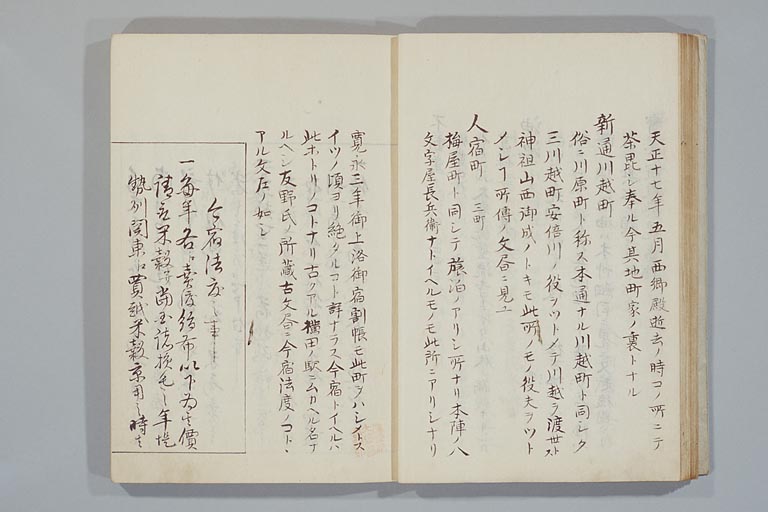 天正十七年五月西郷殿逝去ノ時コノ所ニテ
荼毘シ奉ル今其地町家ノ裏トナル
新通川越町
俗ニ川原町ト称ス本通ナル川越町ト同シク
三川越町安倍川ノ役ヲツトメテ川越ヲ渡世トス
神祖山西御成ノトキモ此所ノモノ役夫ヲツト
メシコ所傳ノ文書ニ見ユ
人宿町 三町
梅屋町ト同シテ旅泊ノアリシ所ナリ本陣ノ八
文字屋長兵衛ナトイヘルモノモ此所ニアリシナリ
寛永三年御上洛御宿割帳モ此町ヲハシメトス
イツノ頃ヨリ絶タルコト詳ナラス今宿トイヘルハ
此ホトリノコトナリ古クアル
ノ駅ニムカヘル名ナ
ルヘシ友野氏ノ所蔵古文書ニ今宿法度ノコト
アル文左ノ如シ
今宿法度之事
一毎年各
布以下
價
米穀
年
関東
米穀
時